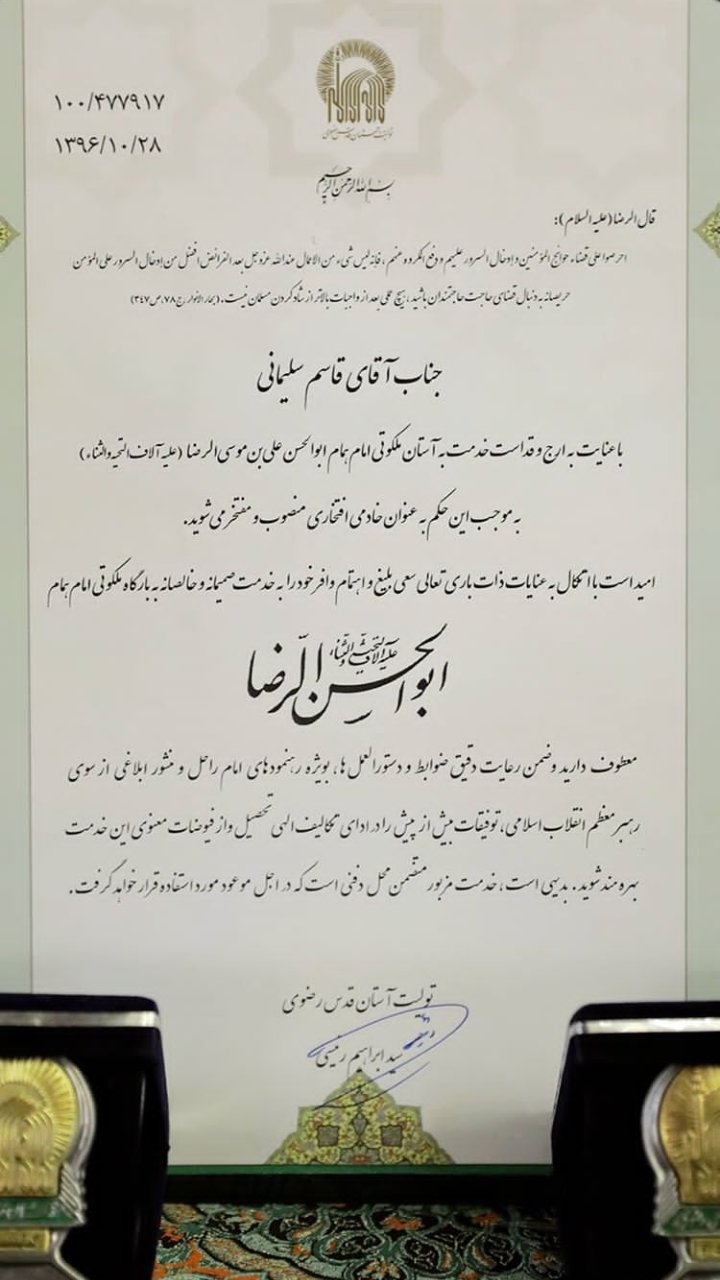 ۱۰۰/۴۷۷۹۱۷
۱۳۹۶/۱۰/۲۸
بسم الله الرحمن الرحیم
قال الرضا (علیه السلام):
احرصوا علی قضاء حوائج المؤمنین و إدخال السرور علیهم و دفع المکروه عنهم، فإنه لیس شیء من الاعمال عند الله عزوجل بعد الفرائض افضل من إدخال السرور علی المؤمن
حریصانه به دنبال قضای حاجت حاجتمندان باشید، هیچ عملی بعد از واجبات بالاتر از شاد کردن مسلمان نیست. (بحار الانوار، ج۷۸، ص۳۴۷)
جناب آقای قاسم سلیمانی
با عنایت به ارج و قداست خدمت به آستان ملکوتی امام همام ابوالحسن علی بن موسی الرضا (علیه آلاف التحیه والثناء)
به موجب این حکم به عنوان خادمی افتخاری منصوب و مفتخر می شوید.
امید است با اتکال به عنایات ذات باری تعالی سعی بلیغ و اهتمام وافر خود را به خدمت صمیمانه و خالصانه به بارگاه ملکوتی امام همام
ابوالحسن الرضا علیه آلاف التحیة والثناء
معطوف دارید و ضمن رعایت دقیق ضوابط و دستورالعمل ها، بویژه رهنمودهای امام راحل و منشور ابلاغی از سوی
رهبر معظم انقلاب اسلامی، توفیقات بیش از پیش را در ادای تکالیف الهی تحصیل و از فیوضات معنوی این خدمت
بهره مند شوید. بدیهی است، خدمت مزبور متضمن محل دفنی است که در اجل موعود مورد استفاده قرار خواهد گرفت.
تولیت آستان قدس رضوی
سید ابراهیم رئیسی